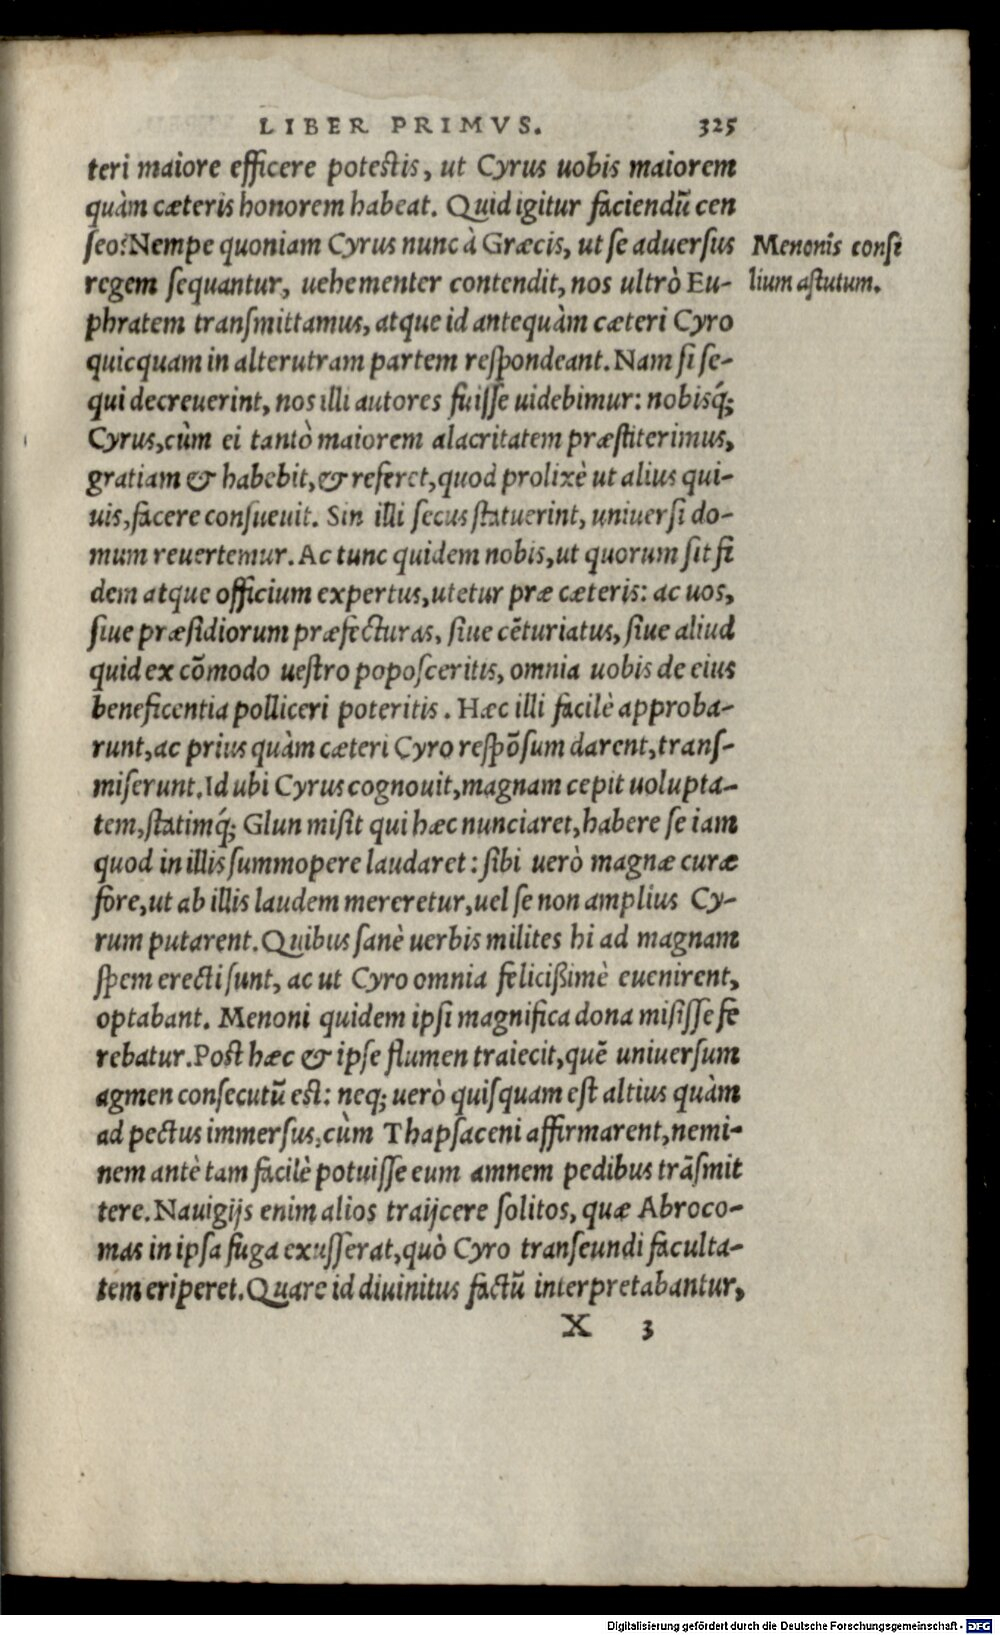 LIBER PRIMVS. 325
teri maiore efficere potestis, ut Cyrus uobis maiorem
quàm cæteris honorem habeat. Quid igitur faciendũ cen
seo? Nempe quoniam Cyrus nunc à Græcis, ut se aduersus
regem sequantur, uehementer contendit, nos ultrò Eu-
phratem transmittamus, atque id antequàm cæteri Cyro
quicquam in alterutram partem respondeant. Nam si se-
qui decreuerint, nos illi autores fuisse uidebimur: nobisq́;
Cyrus, cùm ei tantò maiorem alacritatem præstiterimus,
gratiam & habebit, & referet, quod prolixè ut alius qui-
uis, facere consueuit. Sin illi secus statuerint, uniuersi do-
mum reuertemur. Ac tunc quidem nobis, ut quorum sit fi
dem atque officium expertus, utetur præ cæteris: ac uos,
siue præsidiorum præfecturas, siue cẽturiatus, siue aliud
quid ex cõmodo uestro poposceritis, omnia uobis de eius
beneficentia polliceri poteritis. Hæc illi facilè approba-
runt, ac prius quàm cæteri Cyro respõsum darent, trans-
miserunt. Id ubi Cyrus cognouit, magnam cepit uolupta-
tem, statimq́; Glun misit qui hæc nunciaret, habere se iam
quod in illis summopere laudaret: sibi uerò magnæ curæ
fore, ut ab illis laudem mereretur, uel se non amplius Cy-
rum putarent. Quibus sanè uerbis milites hi ad magnam
spem erecti sunt, ac ut Cyro omnia felicißimè euenirent,
optabant. Menoni quidem ipsi magnifica dona misisse fe
rebatur. Post hæc & ipse flumen traiecit, quẽ uniuersum
agmen consecutũ est: neq; uerò quisquam est altius quàm
ad pectus immersus, cùm Thapsaceni affirmarent, nemi-
nem antè tam facilè potuisse eum amnem pedibus trãsmit
tere. Nauigijs enim alios traijcere solitos, quæ Abroco-
mas in ipsa fuga exusserat, quò Cyro transeundi faculta-
tem eriperet. Quare id diuinitus factũ interpretabantur,
X 3
Menonis consi
lium astutum.
Digitalisierung gefördert durch die Deutsche Forschungsgemeinschaft - DFG